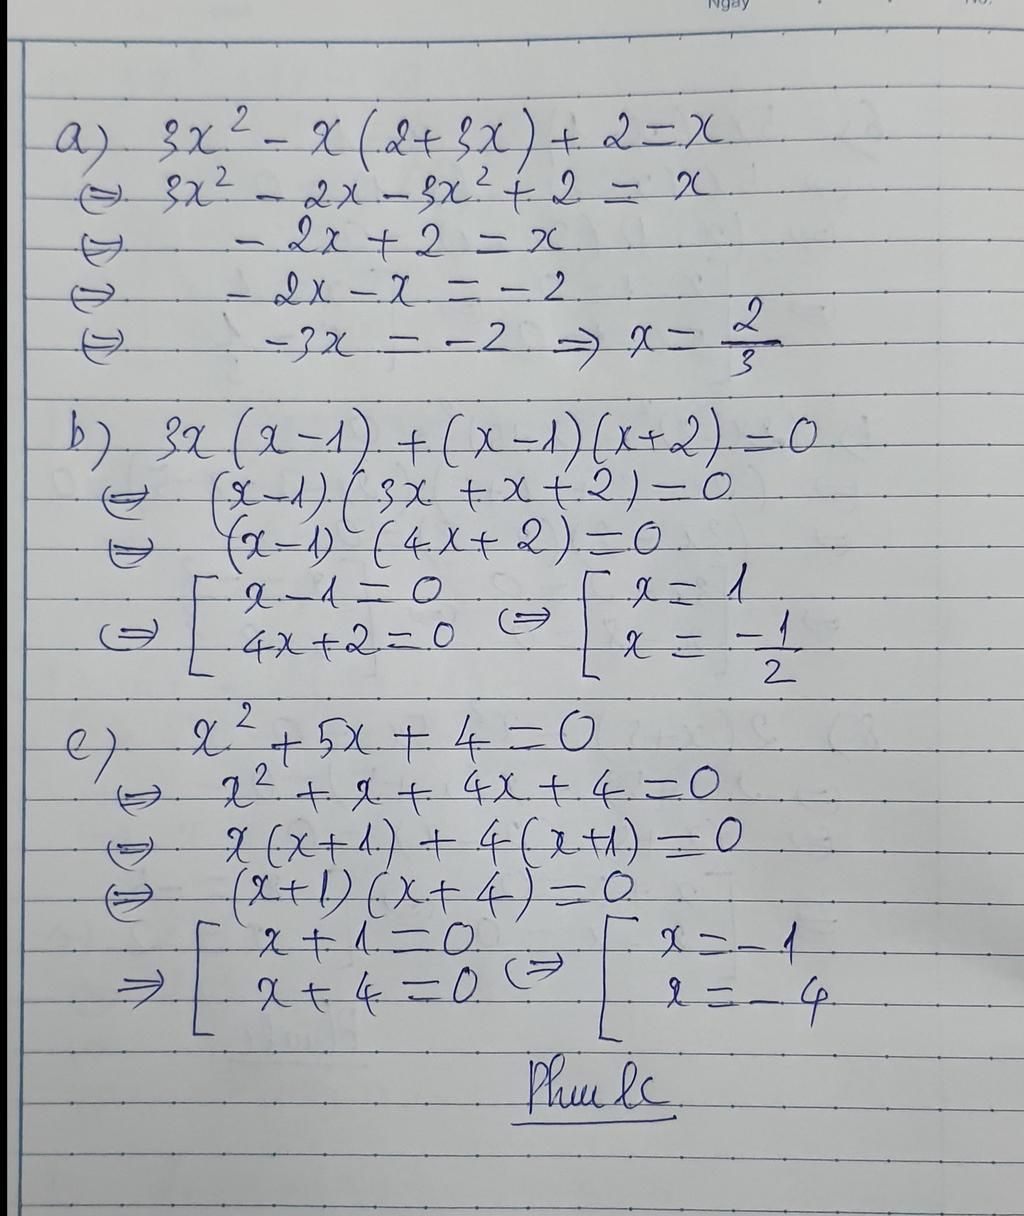 Ngày
No.
a) 3x² - x(2+3x) + 2 = x
⇔ 3x² - 2x - 3x² + 2 = x
⇔ - 2x + 2 = x
⇔ - 2x - x = - 2
⇔ -3x = -2 ⇒ x = 2/3
b) 3x(x-1) + (x-1)(x+2) = 0
⇔ (x-1)(3x + x + 2) = 0
⇔ (x-1) (4x+2) = 0
⇔ [ x - 1 = 0 ⇔ [ x = 1
4x+2 = 0 x = -1/2
c) x² + 5x + 4 = 0
⇔ x² + x + 4x + 4 = 0
⇔ x(x+1) + 4(x+1) = 0
⇔ (x+1)(x+4) = 0
⇒ [ x + 1 = 0 ⇔ [ x = - 1
x + 4 = 0 x = - 4